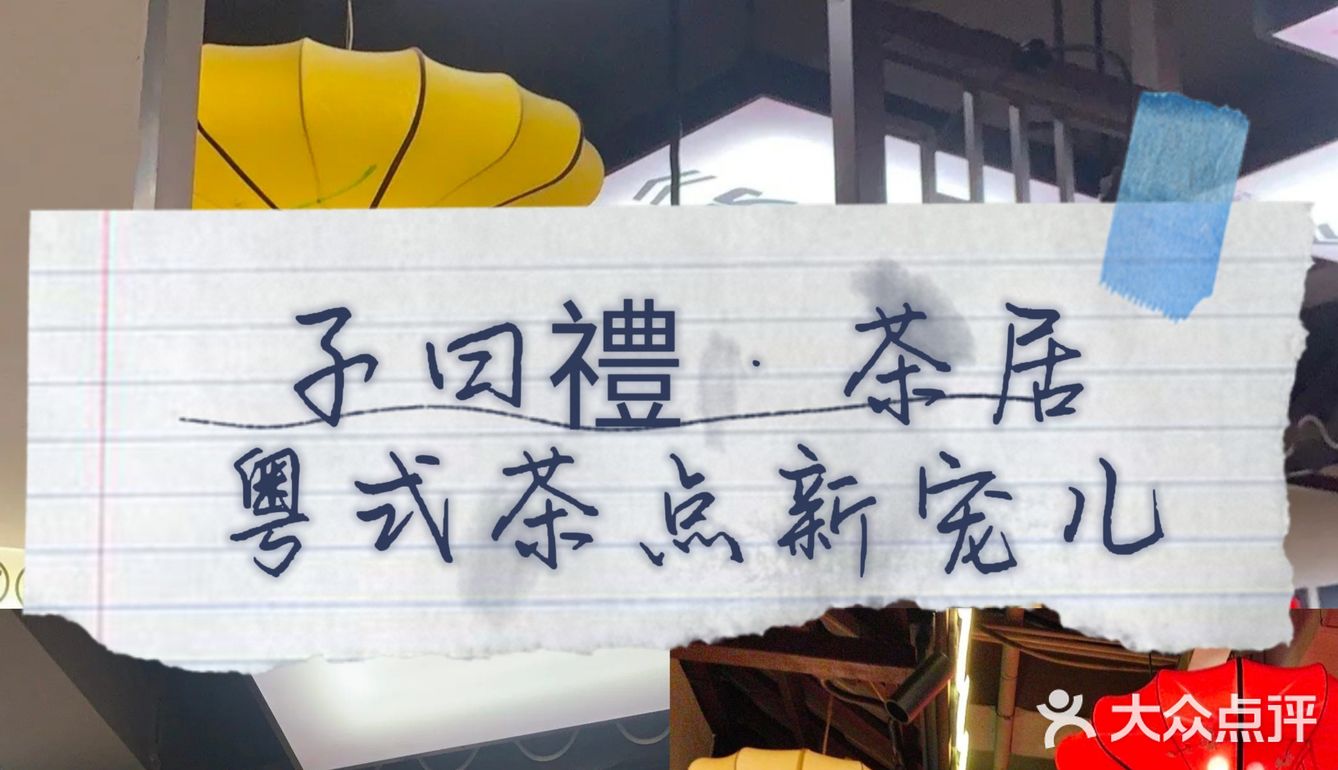 子曰禮·茶居
粤式茶点新宠儿
大众点评